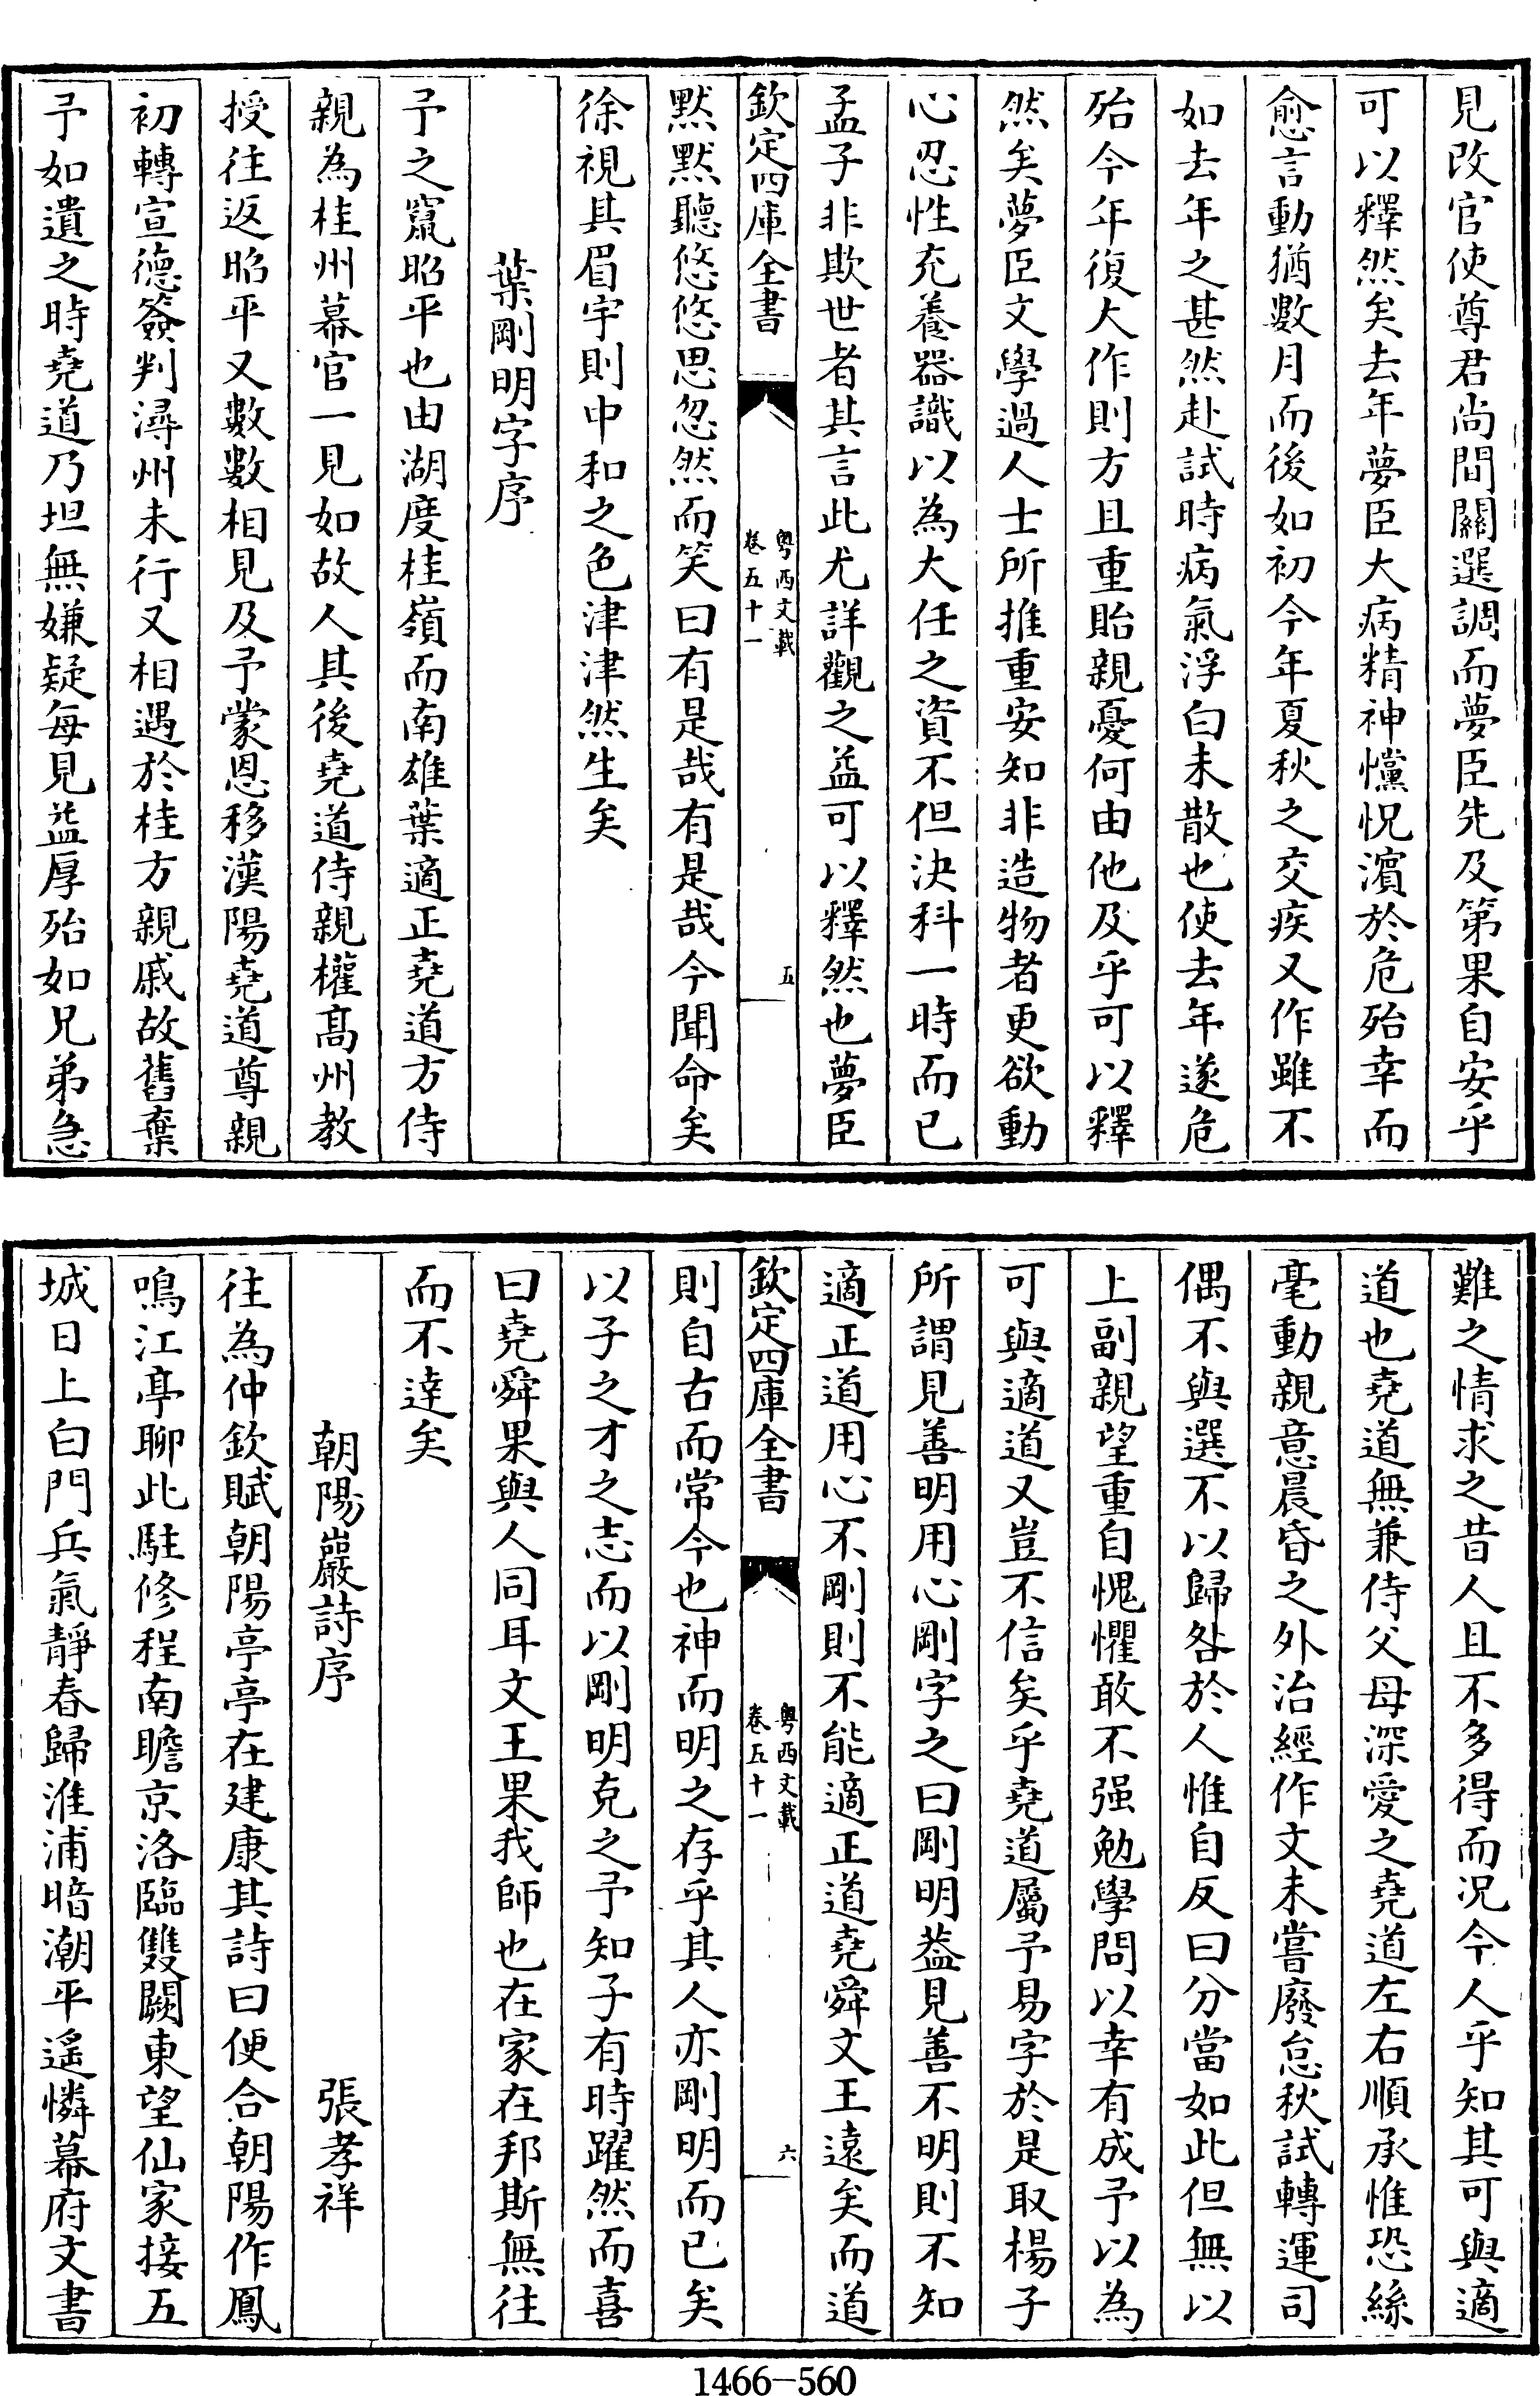 見改官使尊君尚間關選調而夢臣先及第果自安乎
可以釋然矣去年夢臣大病精神戃怳濵於危殆幸而
愈言動猶數月而後如初今年夏秋之交疾又作雖不
如去年之甚然赴試時病氣浮白未散也使去年遂危
殆今年復大作則方且重貽親憂何由他及乎可以釋
然矣夢臣文學過人士所推重安知非造物者更欲動
心忍性充養器識以為大任之資不但決科一時而已
孟子非欺世者其言此尤詳觀之益可以釋然也夢臣
欽定四庫全書
粤西文載
卷五十一
五
黙黙聽悠悠思忽然而笑曰有是哉有是哉今聞命矣
徐視其眉宇則中和之色津津然生矣
葉剛明字序
予之竄昭平也由湖度桂嶺而南雄葉適正堯道方侍
親為桂州幕官一見如故人其後堯道侍親權髙州教
授往返昭平又數數相見及予蒙恩移漢陽堯道尊親
初轉宣德簽判潯州未行又相遇於桂方親戚故舊棄
予如遺之時堯道乃坦無嫌疑每見益厚殆如兄弟急
難之情求之昔人且不多得而况今人乎知其可與適
道也堯道無兼侍父母深愛之堯道左右順承惟恐絲
毫動親意晨昏之外治經作文未嘗廢怠秋試轉運司
偶不與選不以歸咎於人惟自反曰分當如此但無以
上副親望重自愧懼敢不强勉學問以幸有成予以為
可與適道又豈不信矣乎堯道屬予易字於是取楊子
所謂見善明用心剛字之曰剛明葢見善不明則不知
適正道用心不剛則不能適正道堯舜文王遠矣而道
欽定四庫全書
粤西文載
卷五十一
六
則自古而常今也神而明之存乎其人亦剛明而已矣
以子之才之志而以剛明克之予知子有時躍然而喜
曰堯舜果與人同耳文王果我師也在家在邦斯無往
而不逹矣
朝陽巖詩序 張孝祥
往為仲欽賦朝陽亭亭在建康其詩曰便合朝陽作鳳
鳴江亭聊此駐修程南瞻京洛臨雙闕東望仙家接五
城日上白門兵氣靜春歸淮浦暗潮平遙憐幕府文書
1466-560